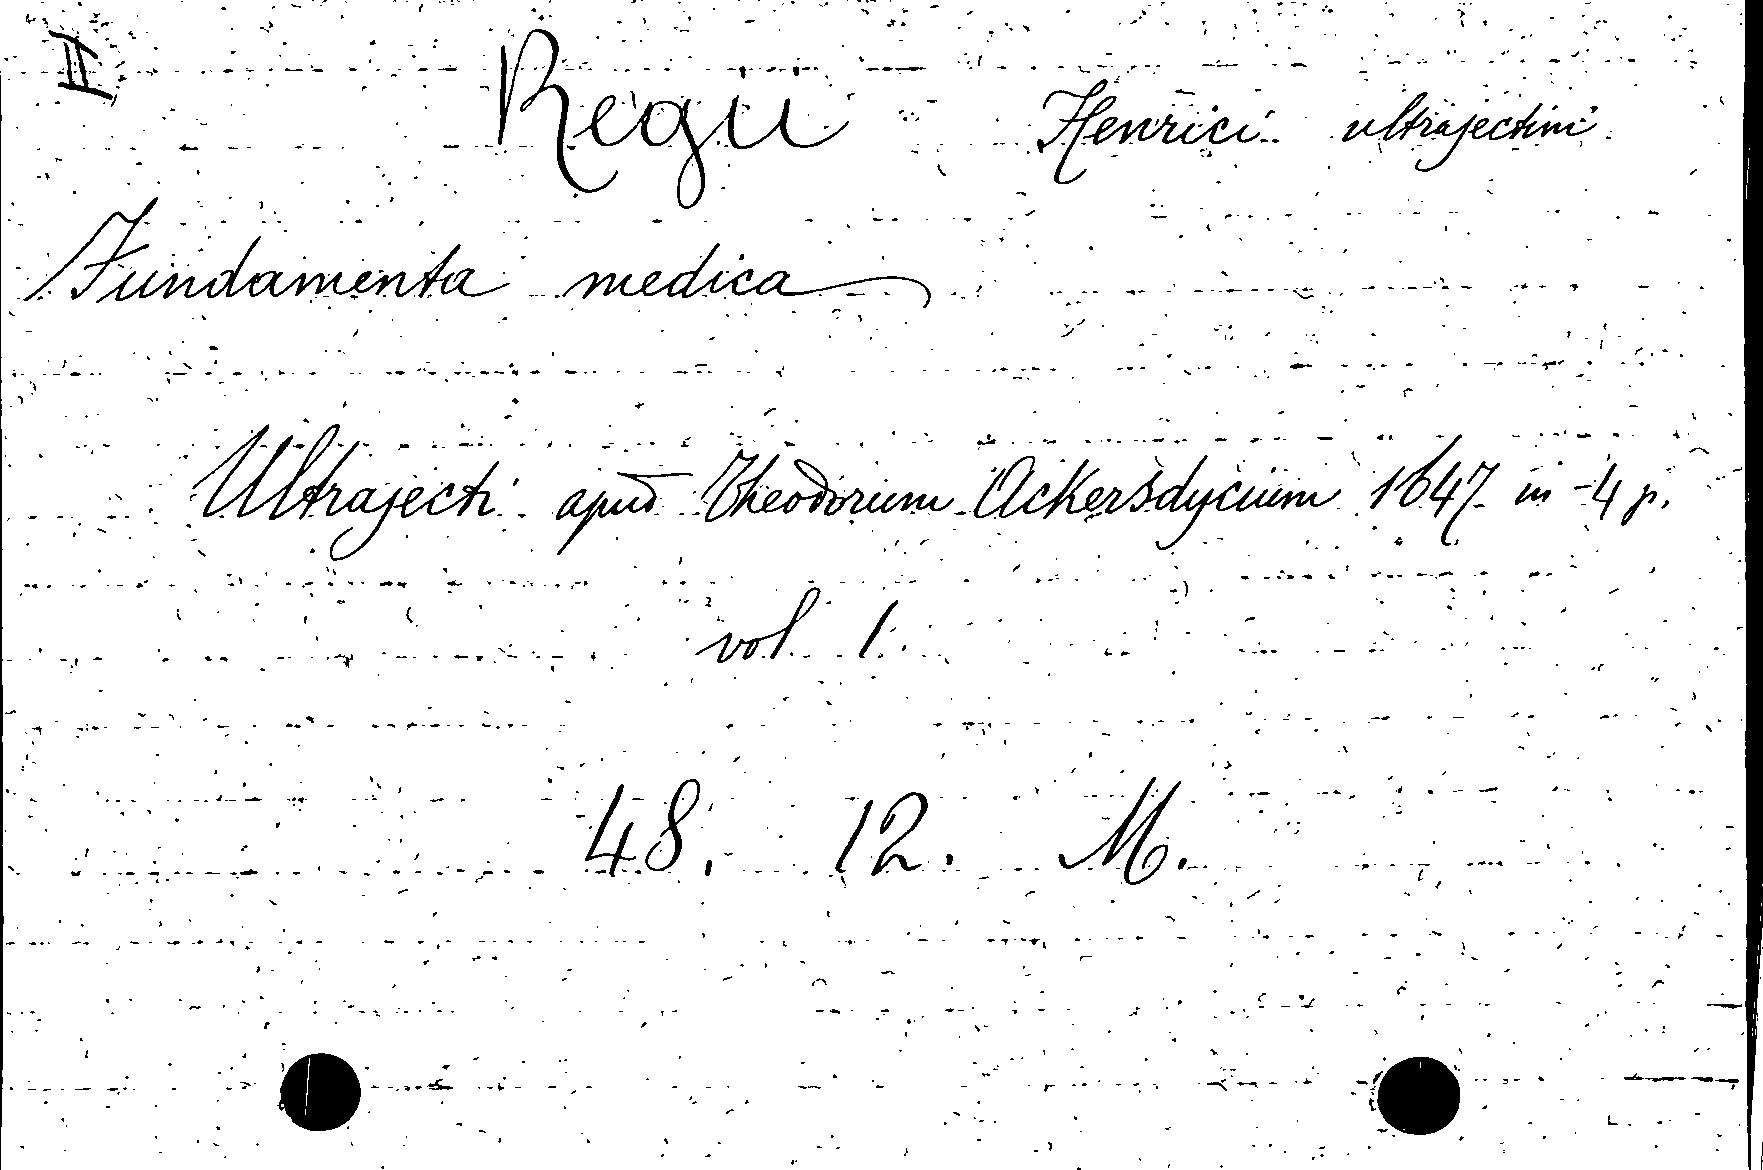 II Regii Henrici ultrajectini
Fundamenta medica
Ultrajecti apud Theodorum Ackersdycium 1647 in-4 p.
vol 1.
48. 12. M.